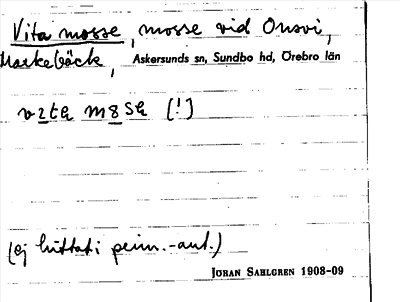 Vita mosse, mosse vid Onsvi,
Markebäck, Askersunds sn, Sundbo hd, Örebro län
vita møsa [!]
(ej hittat i prim.-ant.)
JÖRAN SAHLGREN 1908-09